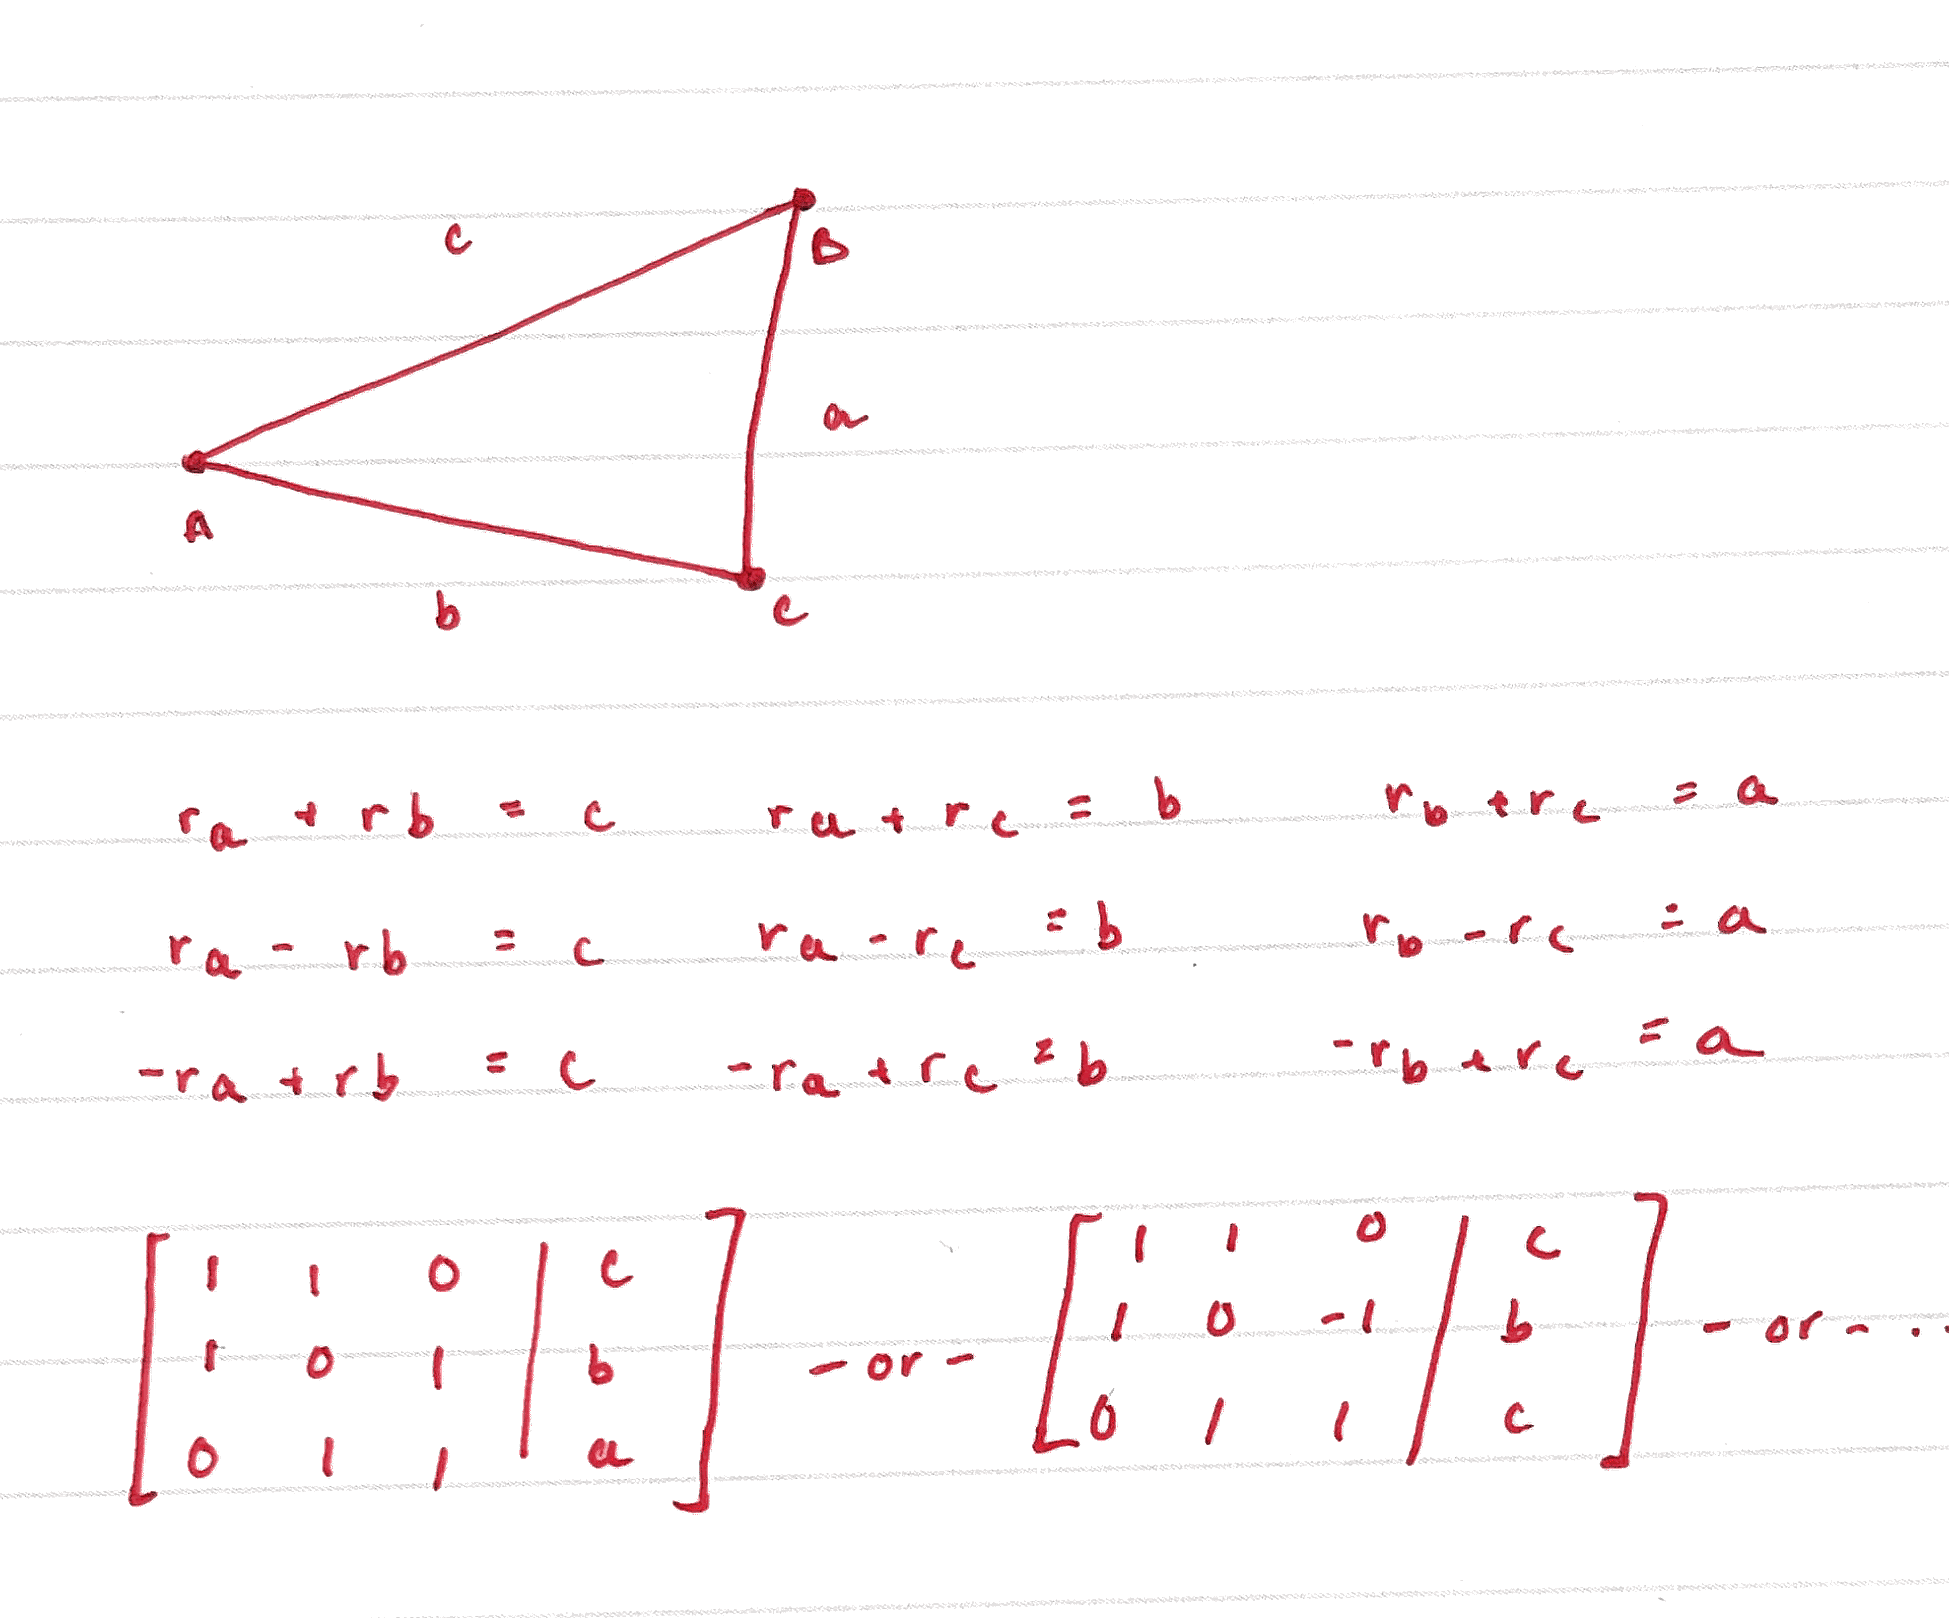 c
B
a
A
b
C
r_a + r_b = c    r_a + r_c = b    r_b + r_c = a
r_a - r_b = c    r_a - r_c = b    r_b - r_c = a
-r_a + r_b = c    -r_a + r_c = b    -r_b + r_c = a
[ 1 1 0 | c ]    [ 1 1 0 | c ]
[ 1 0 1 | b ] - or - [ 1 0 -1 | b ] - or - ..
[ 0 1 1 | a ]    [ 0 1 1 | c ]